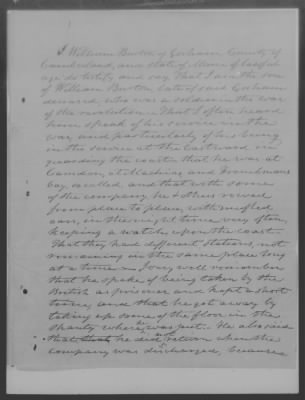 I William Burton of Gorham County of
Cumberland, and state of Maine of lawful
age do testify and say, That I am the son
of William Burton late of said Gorham
deceased, who was a soldier in the war
of the revolution. That I often heard
him speak of his service in the
war and particularly of his being
in the service at the Eastward in
guarding the coast; that he was at
Camden, at Machias and Frenchmans
bay, so called, and that with some
of the company he & others moved
from place to place, with muffled
oars, in the night time very often,
keeping a watch upon the coast.
That they had different stations, not
remaining in the same place long
at a time. I very well remember
that he spoke of being taken by the
British as prisoner, and kept a short
time, and that he got away by
taking up some of the floor in the
shanty where he was put. He also said
that he did not return when the
company was discharged, because